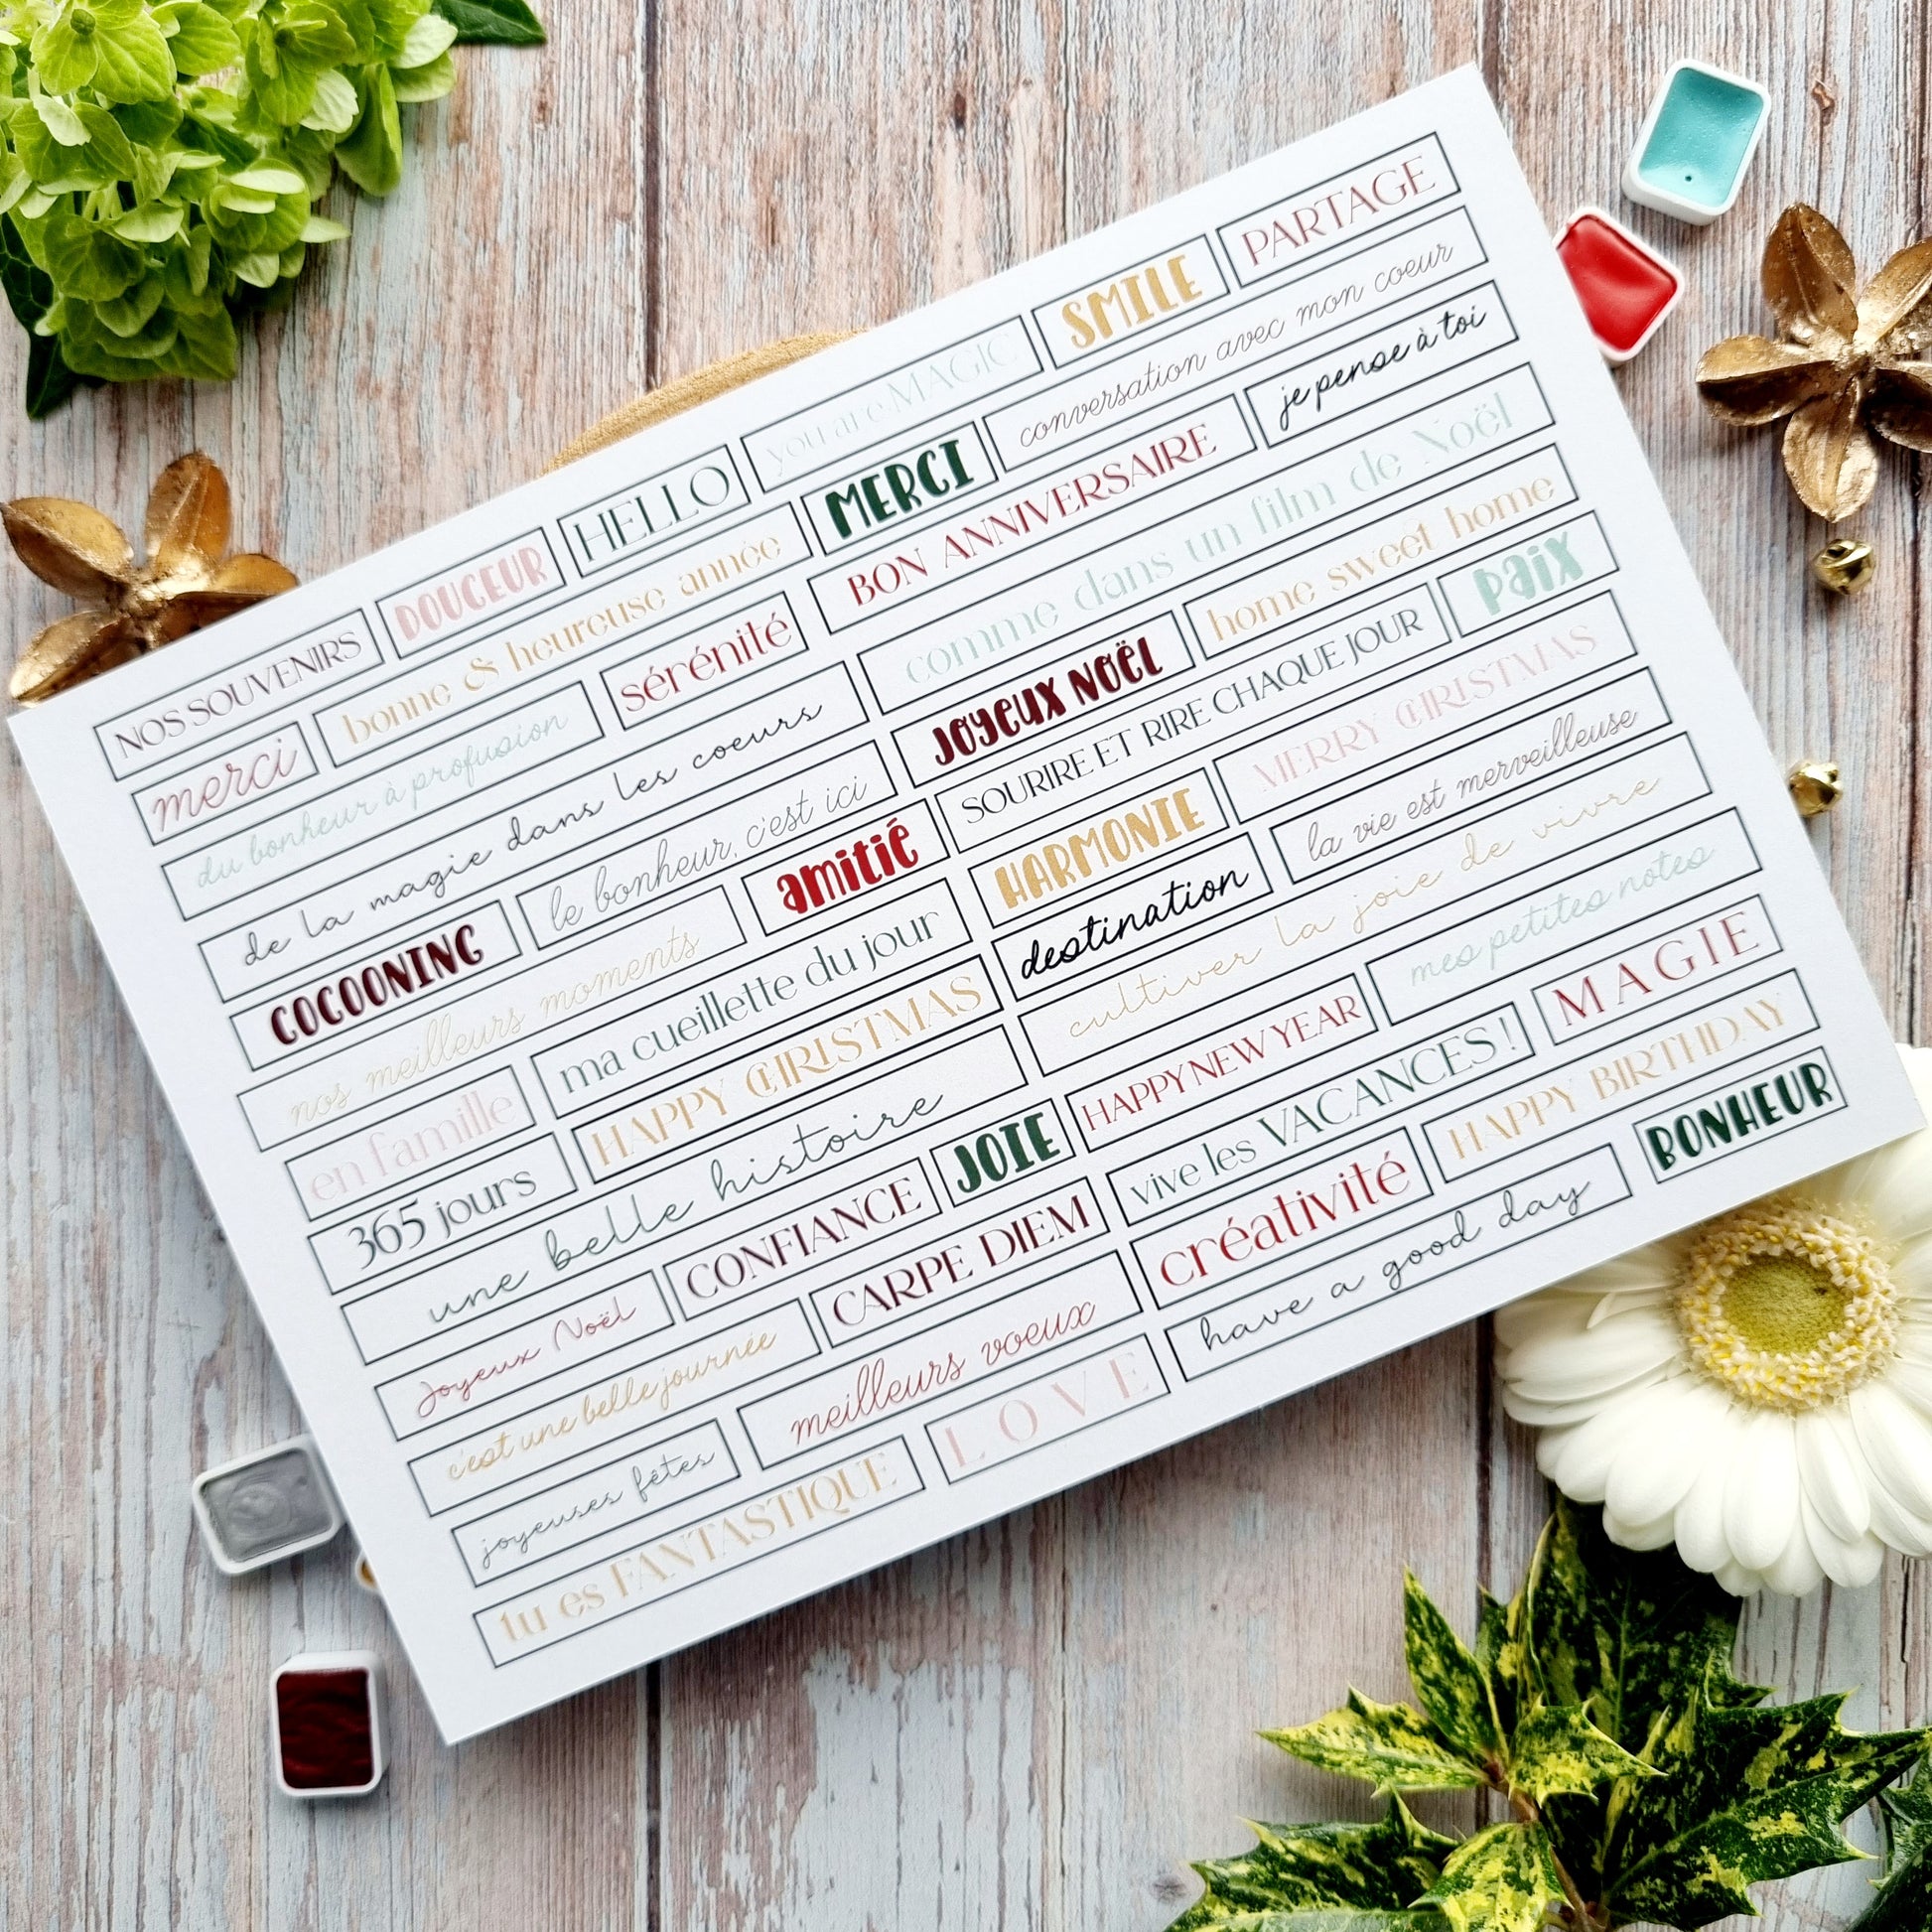 NOS SOUVENIRS
DOUCEUR
HELLO
you are MAGIC
SMILE
PARTAGE
merci
bonne & heureuse année
MERCI
conversation avec mon coeur
du bonheur à profusion
sérénité
BON ANNIVERSAIRE
je pense à toi
de la magie dans les coeurs
comme dans un film de Noël
COCOONING
le bonheur, c'est ici
JOYEUX NOËL
home sweet home
nos meilleurs moments
amitié
SOURIRE ET RIRE CHAQUE JOUR
PAIX
en famille
ma cueillette du jour
HARMONIE
MERRY CHRISTMAS
365 jours
HAPPY CHRISTMAS
destination
la vie est merveilleuse
une belle histoire
cultiver la joie de vivre
Joyeux Noël
CONFIANCE
JOIE
HAPPY NEW YEAR
mes petites notes
c'est une belle journée
CARPE DIEM
vive les VACANCES !
MAGIE
joyeuses fêtes
meilleurs voeux
créativité
HAPPY BIRTHDAY
tu es FANTASTIQUE
LOVE
have a good day
BONHEUR